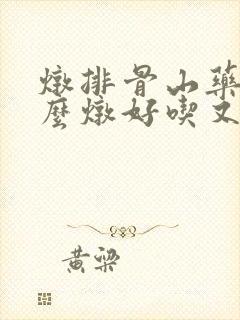 燉排骨山藥
麼燉好喫又
黄梁